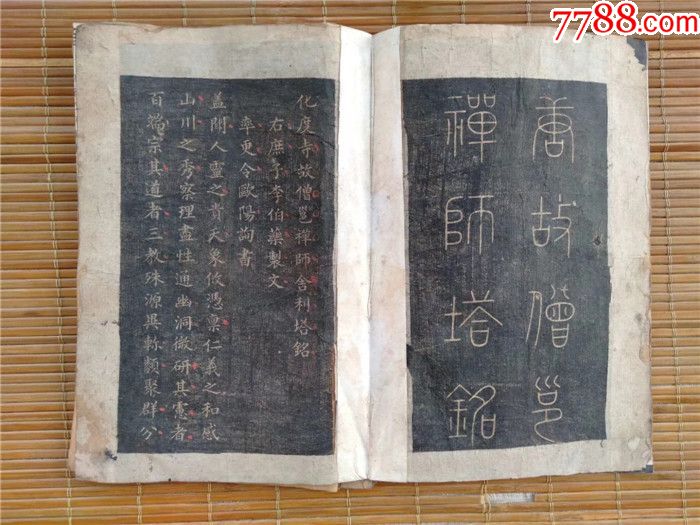 7788.com
唐故僧邕
禪師塔銘
化度寺故僧邕禪師舍利塔銘
右庶子李伯藥製文
率更令歐陽詢書
蓋聞人靈之貴天象攸憑稟仁義之和感
山川之秀察理盡性通幽洞微研其慮者
百端宗其道者三教殊源異軫類聚群分